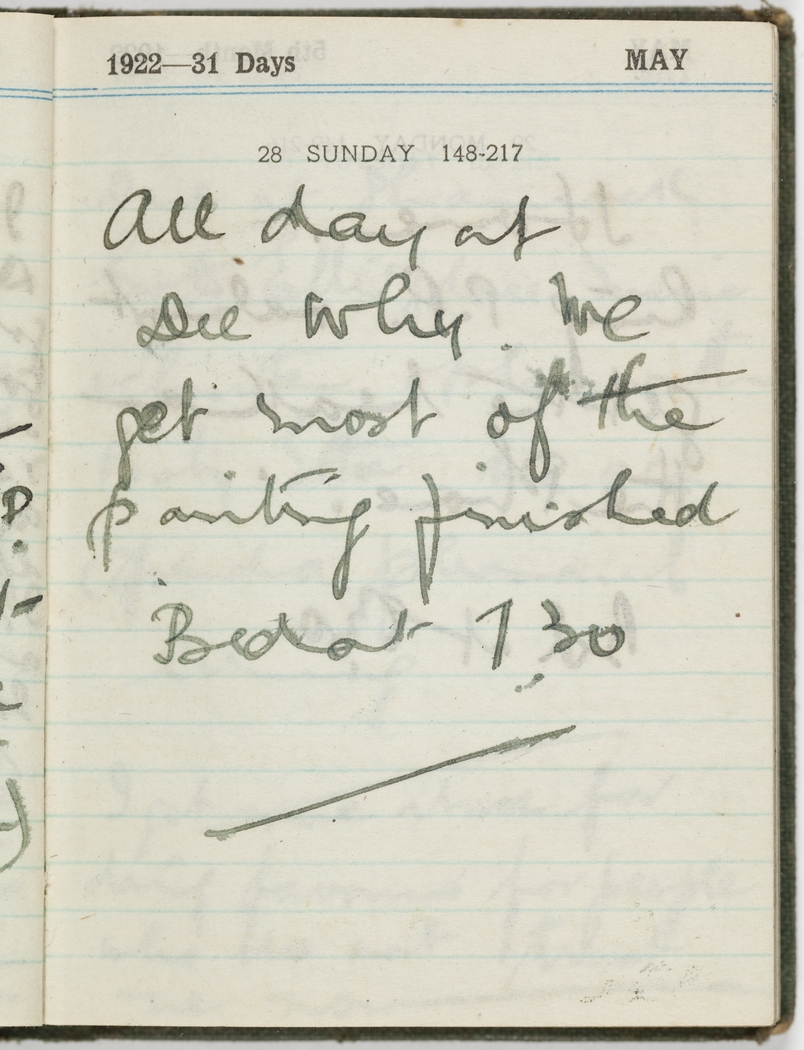 1922—31 Days MAY
28 SUNDAY 148-217
All day at
Dee Why. We
get most of the
painting finished
Bed at 7.30